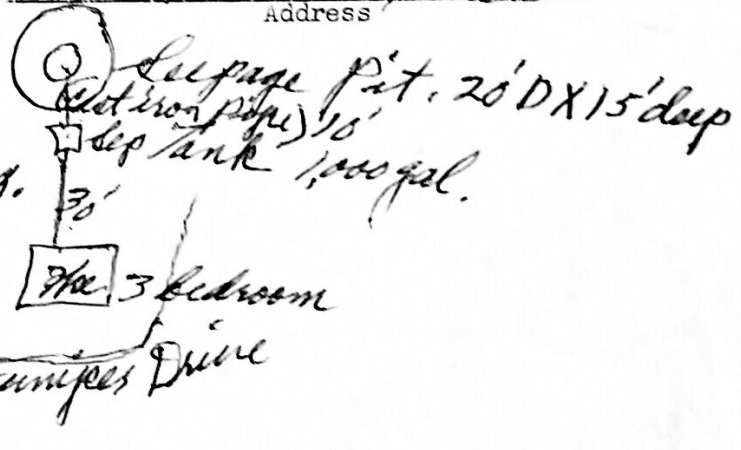 Address
Seepage Pit. 20'D X 15' deep
(Cast iron pipe) 10'
Sep Tank 1,000 gal.
30'
Hse. 3 bedroom
Drive